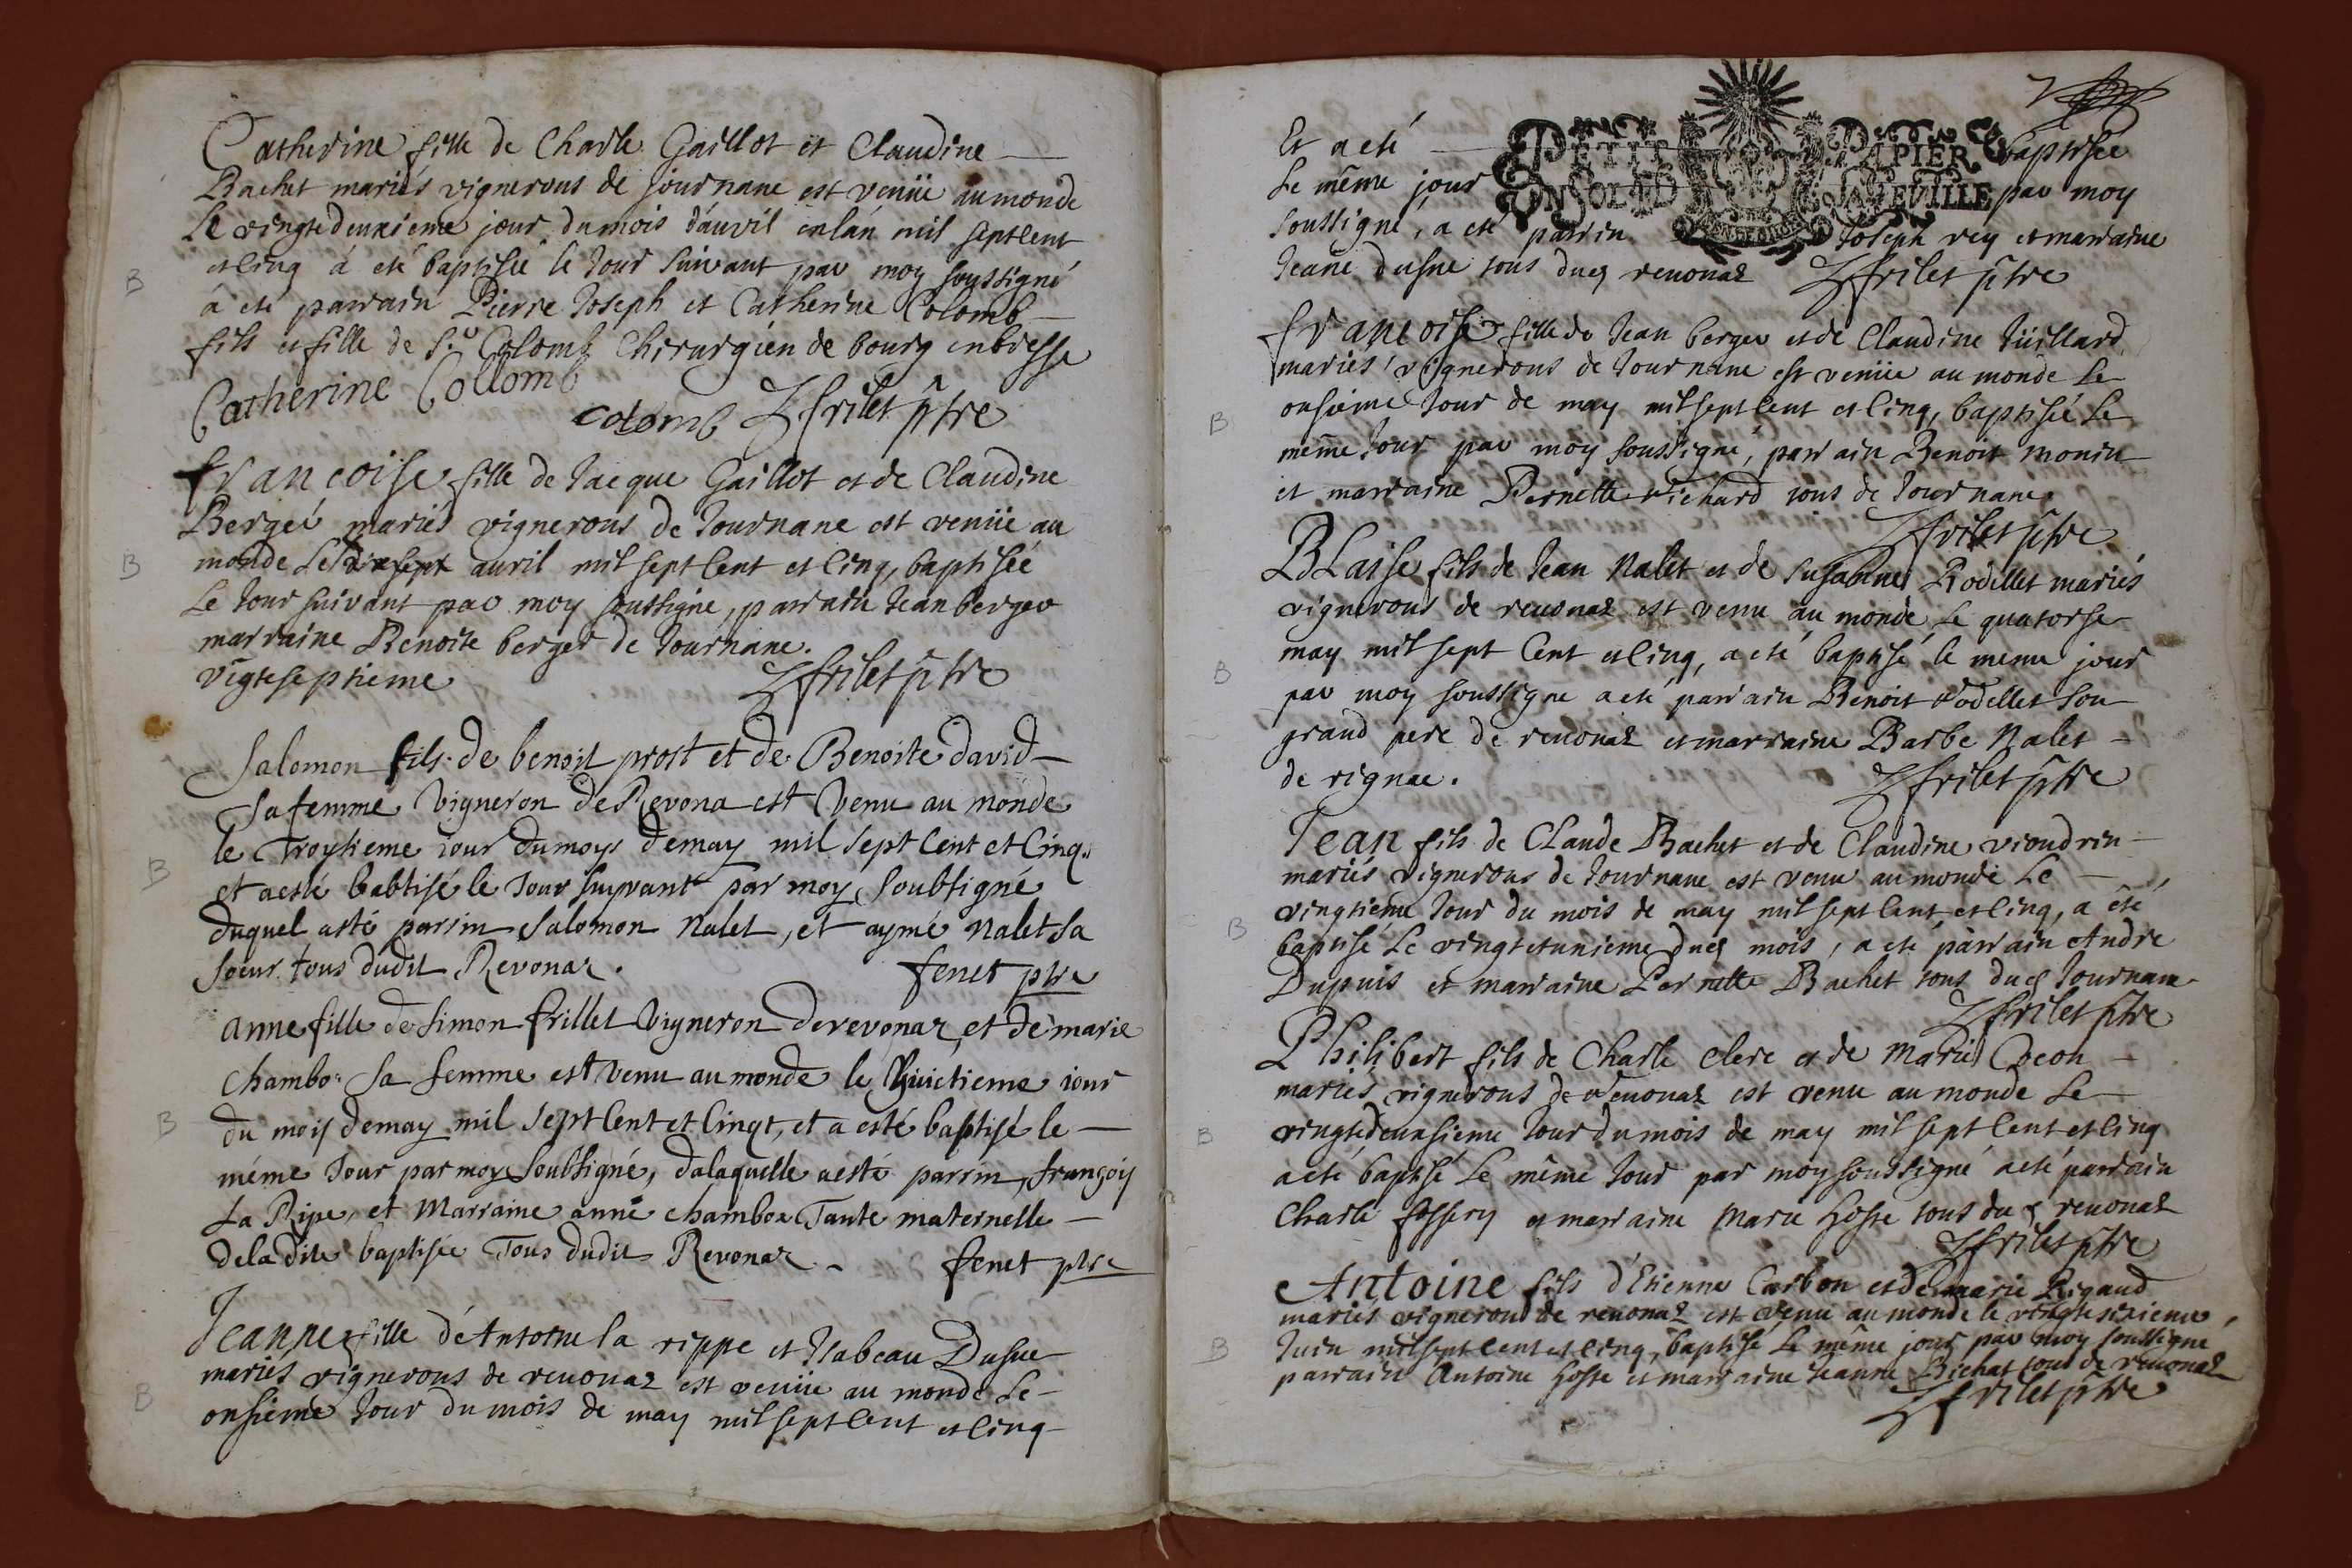 Catherine fille de Charle Gaillot et Claudine
Bachet mariés vignerons de journane est venüe au monde
Le vingtedeuxieme jour du mois d'auvril en lán mil sept cent
et cinq á eté baptisée le jour suivant par moy soussigné
a eté parrain Pierre Joseph et Catherine Colomb
fils et fille de Sr Colomb Chirurgien de bourg en bresse
Catherine Collomb
colomb frilet ptre
françoise fille de Jacque Gaillot et de Claudine
Bergér mariés vignerons de Journane est venüe au
monde Le dixsept auril mil sept cent et cinq, baptisée
Le Jour suivant par moy soussigné, parrain Jean berger
marraine Benoite berger de Journane.
vigteseptieme frilet ptre
Salomon fils de benoit prost et de Benoite david
sa femme vigneron de Revona est venu au monde
le Troysieme iour du moys de may mil sept cent et cinq
et a esté babtisé le Jour suyvant par moy soubsigné
duquel a esté parrin Salomon nalet, et aymé nalet sa
soeur tous dudit Revonaz. fenet ptre
anne fille de simon frillet vigneron de revonaz, et de marie
chambo: sa femme est venu au monde le huictieme iour
du mois de may mil sept cent et cinqt, et a esté baptisé le
méme Jour par moy soubsigné, de laquelle a esté parrin, françois
La Ripe, et marraine anne chambox Tante maternelle
de la dite baptisée Tous dudit Revonaz. fenet ptre
Jeanne fille dé Antoine la rippe et Isabeau Dusue
mariés vignerons de reuonaz est venüe au monde Le
onsiéme Jour du mois de may mil sept cent et cinq
Et a eté baptisée
Le même jour par moy
PETIT PAPIER
UN SOL LA FEUILLE
soussigné, a eté parrin Joseph rey et marraine
Jeane dusue tous dud reuonaz frilet ptre
françoise fille de Jean berger et de Claudine Tüillard
mariés vignerons de Journane est venüe au monde Le
onsieme Jour de may mil sept cent et cinq, baptisée Le
même Jour par moy soussigné, parrain Benoit monin
et marraine Pernette richard tous de Journane.
frilet ptre
BLaise fils de Jean nalet et de susanne Rodillet mariés
vignerons de reuonaz est venu au monde Le quatorse
may mil sept cent et cinq, a eté baptisé le meme jour
par moy soussigne a eté parrain Benoit rodillet son
grand pere de reuonaz et marraine Barbe nalet
de rignac. frilet ptre
Jean fils de Claude Bachet et de Claudine vioudrin
mariés vignerons de Journane est venu au monde Le
vingtieme Jour du mois de may mil sept cent et cinq, a êté
baptisé Le vingtetunieme dud mois, a eté parrain Andre
Dupuis et marraine Pernette Bachet tous dud Journane
frilet ptre
Philibert fils de Charle clerc et de marie Creon
mariés vignerons de reuonaz est venu au monde Le
vingtedeuxsieme Jour du mois de may mil sept cent et cinq
a eté baptisé Le même Jour par moy soussigné a eté parrain
Charle fossery et marraine marie hosse tous dud reuonaz
frilet ptre
Antoine fils d'Etienne Carbon et de marie Rigaud
mariés vignerons de reuonaz est venu au monde le vingtesixieme
Juin mil sept cent et cinq, baptisé Le même jour par moy soussigné
parrain Antoine hosse et marraine Jeanne Bichat tous de reuonaz
frilet ptre